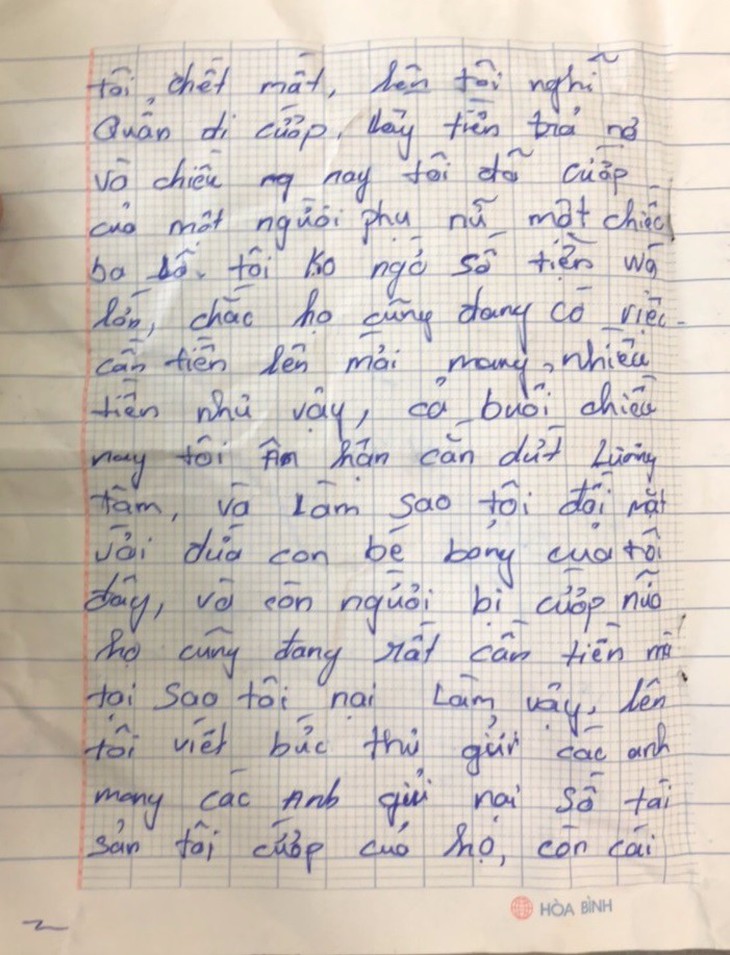 tôi, chết mất, lên tôi nghĩ
Quẩn đi cướp, lấy tiền trả nợ
và chiều ng nay tôi đã cướp
của một người phụ nữ một chiếc
ba lô. tôi ko ngờ số tiền wá
lớn, chắc họ cũng đang có việc
cần tiền lên mới mang, nhiều
tiền như vậy, cả buổi chiều
nay tôi ân hận cắn dứt Lương
tâm, và Làm sao tôi đối mặt
với đứa con bé bỏng của tôi
đây, và còn người bị cướp nữa
họ cũng đang rất cần tiền mà
tại sao tôi nại Làm vậy, lên
tôi viết bức thư gửi các anh
mong các Anh gửi nại số tài
sản tôi cướp của họ, còn cái
HÒA BÌNH
2